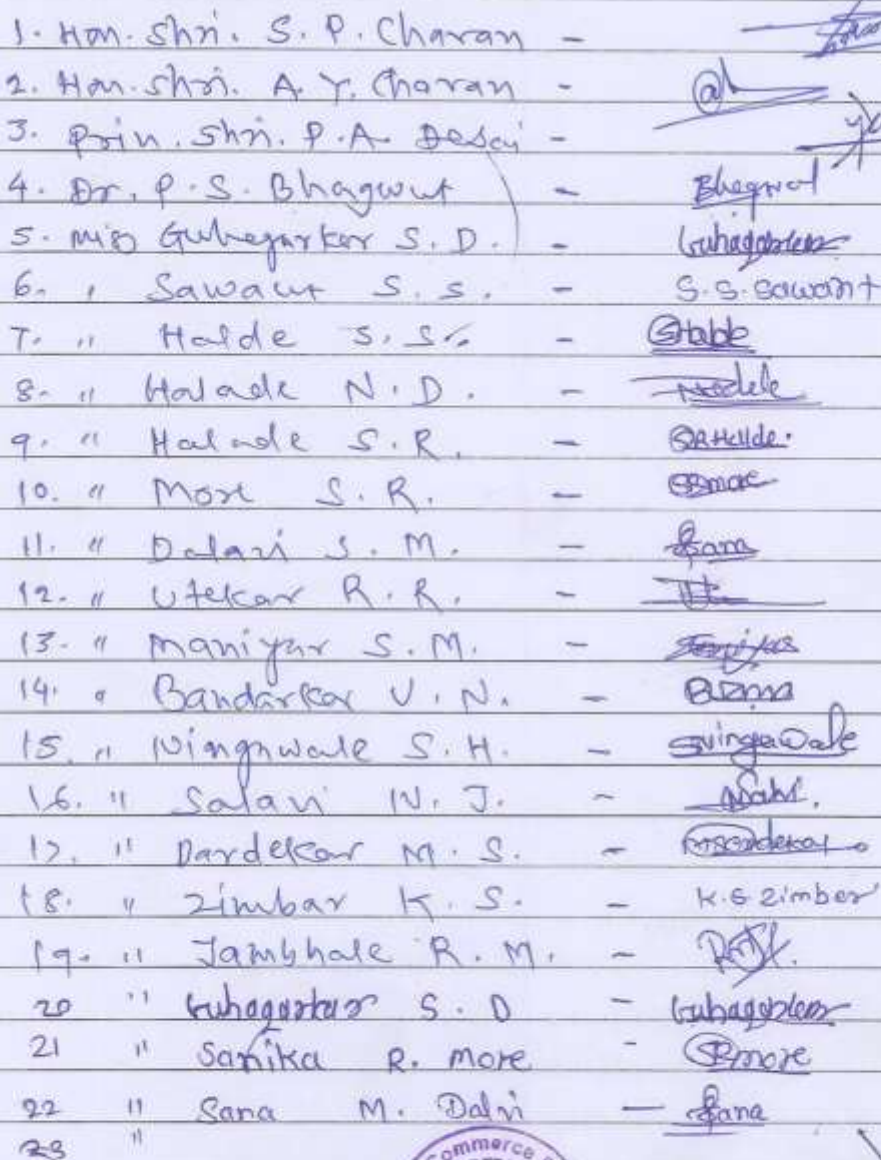 1. Hon. Shri. S. P. Chavan -
2. Hon. Shri. A. Y. Chavan -
3. Prin. Shri. P. A. Desai -
4. Dr. P. S. Bhagwut - Bhagwat
5. Miss Guhagarkar S. D. - Guhagarkar
6. " Sawant S. S. - S. S. Sawant
7. " Halde S. S. -
8. " Halade N. D. -
9. " Halade S. R. - SRHalde.
10. " More S. R. - SRmore
11. " Dalavi S. M. - Sana
12. " Utekar R. R. -
13. " Maniyar S. M. -
14. " Bandarkar V. N. -
15. " Vinghwale S. H. -
16. " Salavi N. J. -
17. " Dardekar M. S. -
18. " Zimbar K. S. - K. S Zimber
19. " Jambhale R. M. -
20 " Guhagarkar S. D - Guhagarkar
21 " Sanika R. More - SRmore
22 " Sana M. Dalvi - Sana
23 "
Commerce